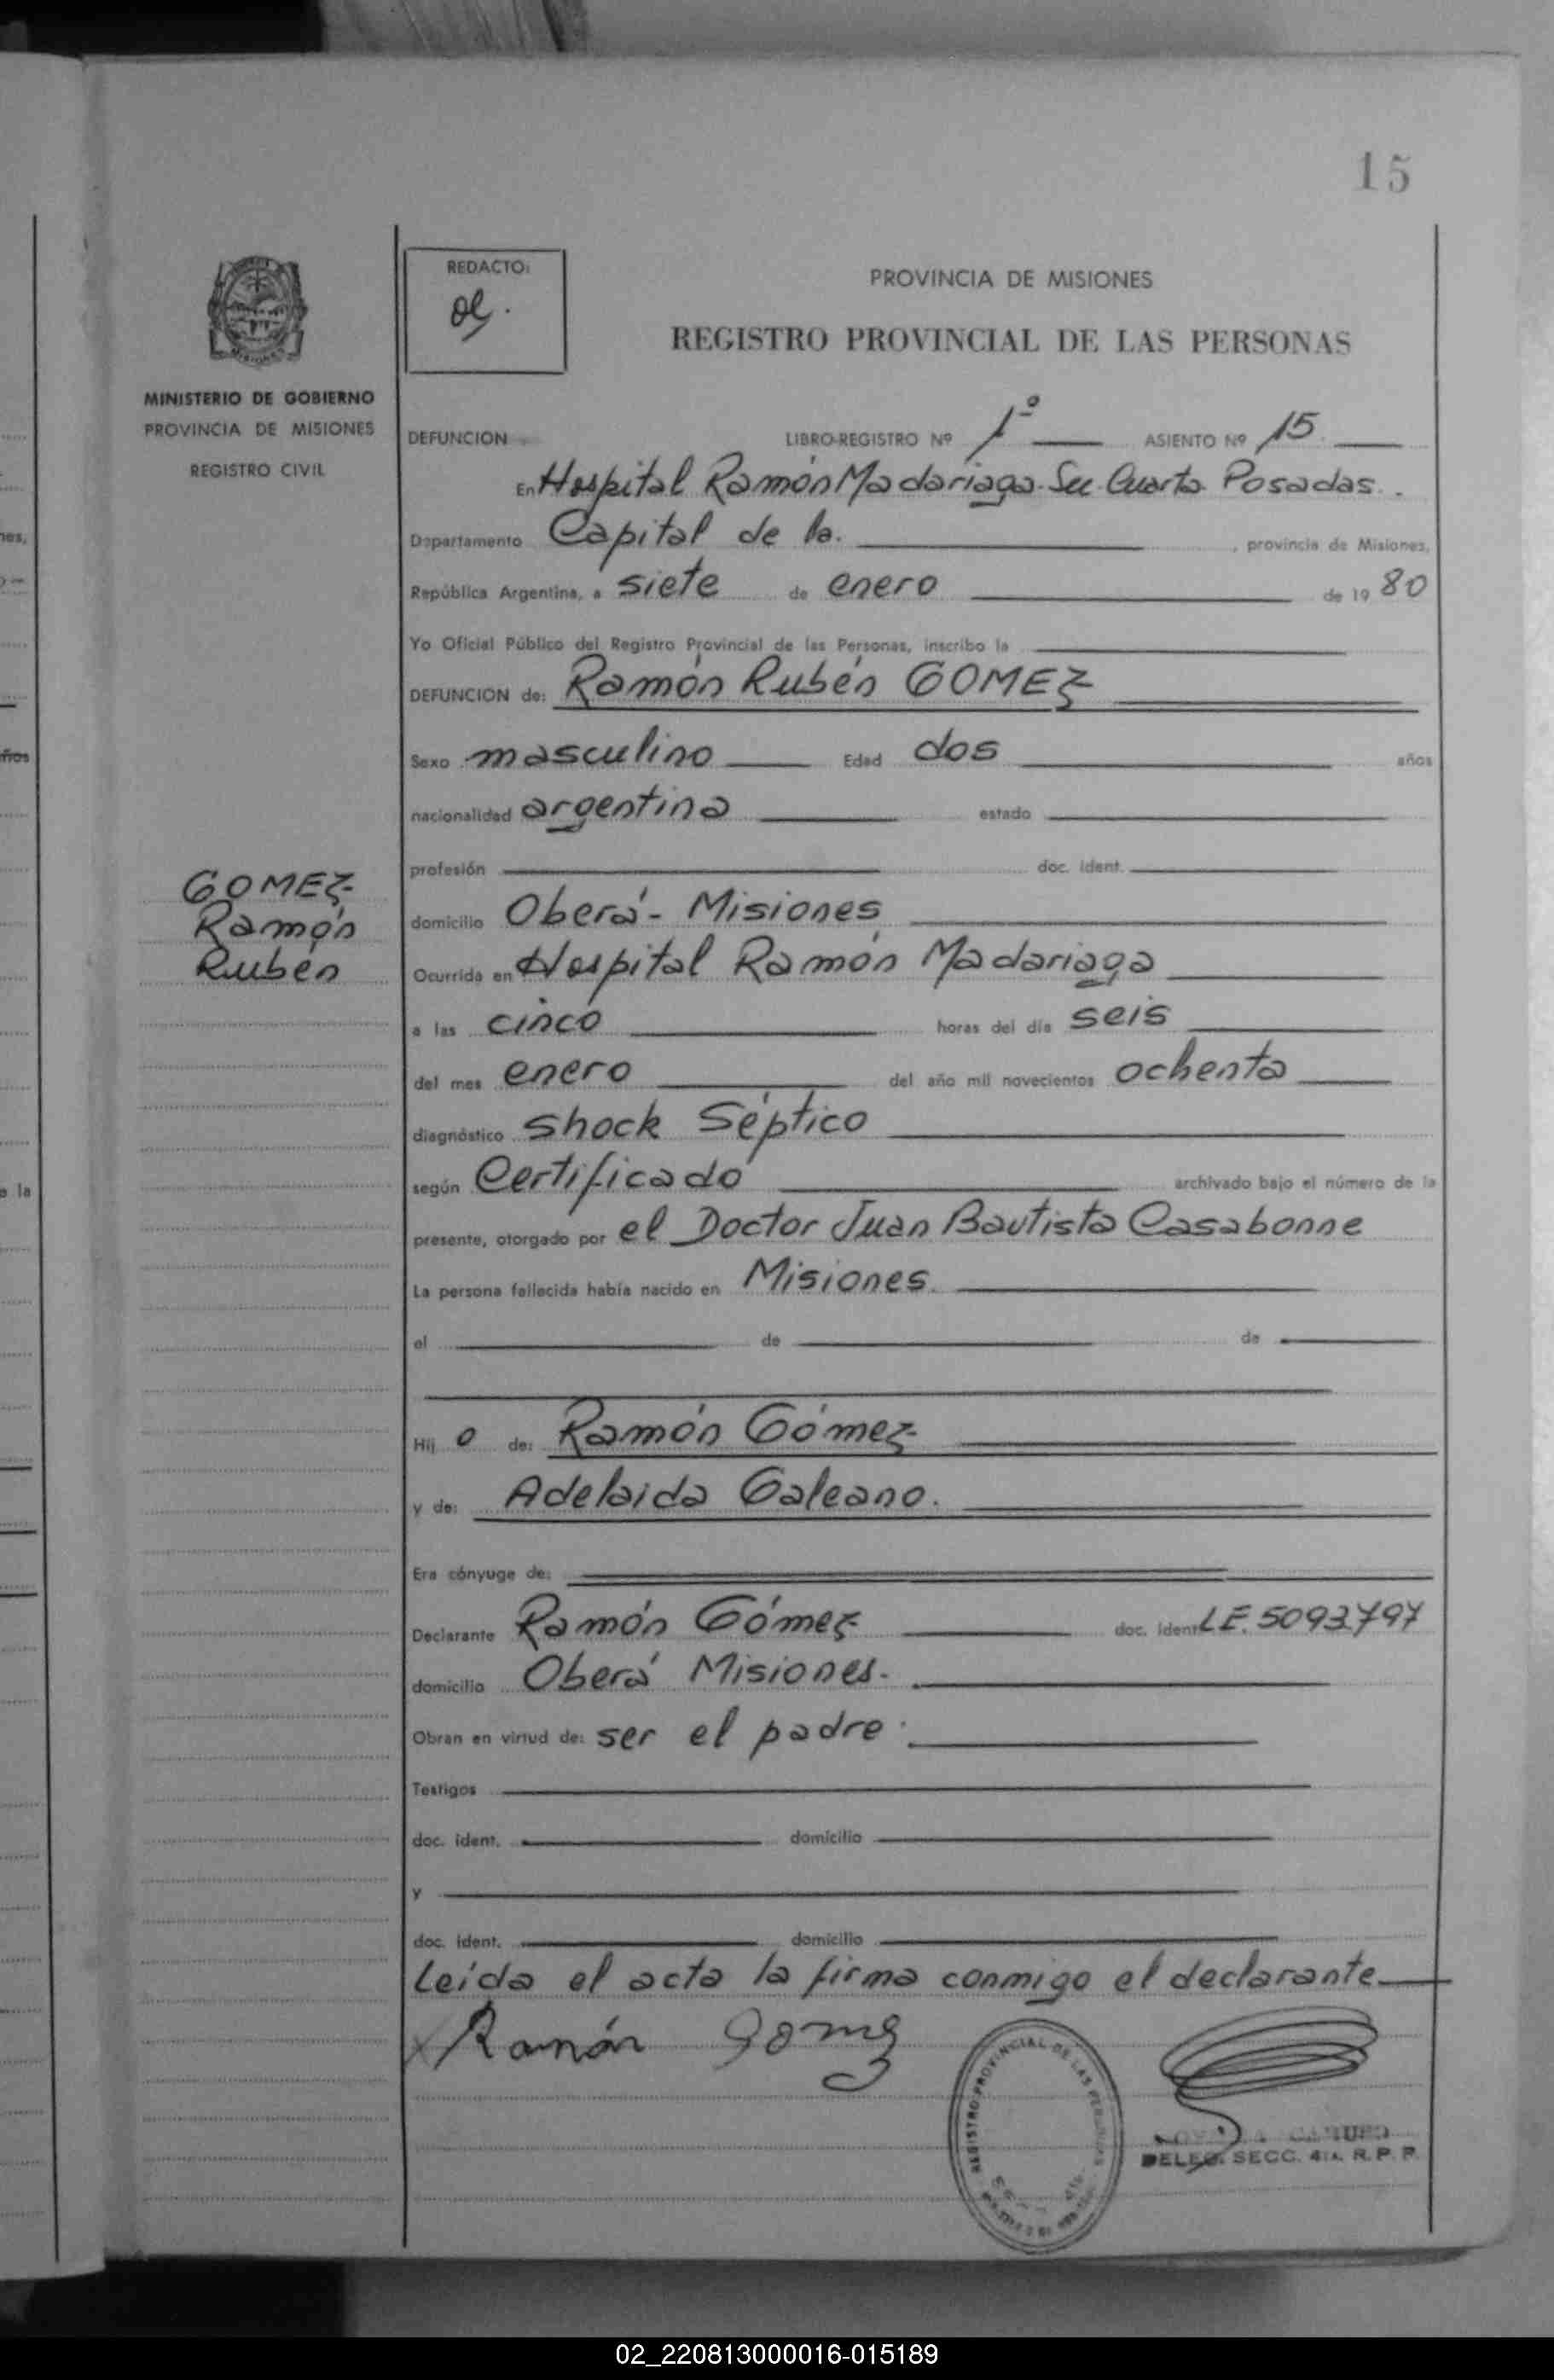 15
REDACTO:
PROVINCIA DE MISIONES
REGISTRO PROVINCIAL DE LAS PERSONAS
MINISTERIO DE GOBIERNO
PROVINCIA DE MISIONES
REGISTRO CIVIL
DEFUNCION LIBRO-REGISTRO Nº 1º ASIENTO Nº 15
En Hospital Ramón Madariaga. Sec. Cuarta Posadas.
Departamento Capital de la. , provincia de Misiones,
República Argentina, a siete de enero de 19 80
Yo Oficial Público del Registro Provincial de las Personas, inscribo la
DEFUNCION de: Ramón Rubén GOMEZ
Sexo masculino Edad dos años
nacionalidad argentina estado
profesión doc. ident.
GOMEZ
Ramón
Rubén
domicilio Oberá - Misiones
Ocurrida en Hospital Ramón Madariaga
a las cinco horas del día seis
del mes enero del año mil novecientos ochenta
diagnóstico Shock Séptico
según Certificado archivado bajo el número de la
presente, otorgado por el Doctor Juan Bautista Casabonne
La persona fallecida había nacido en Misiones
el de de
Hij o de: Ramón Gómez
y de: Adelaida Galeano.
Era cónyuge de:
Declarante Ramón Gómez doc. ident. L.E. 5093797
domicilio Oberá Misiones.
Obran en virtud de: ser el padre.
Testigos
doc. ident. domicilio
y
doc. ident. domicilio
Leída el acta la firma conmigo el declarante
Ramón Gomez
REGISTRO PROVINCIAL DE LAS PERSONAS
DELEG. SECC. 4ta. R. P. P.
02_220813000016-015189